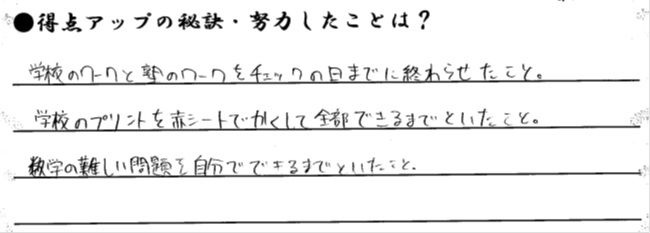 ●得点アップの秘訣・努力したことは？
学校のワークと塾のワークをチェックの日までに終わらせたこと。
学校のプリントを赤シートでかくして全部できるまでといたこと。
数学の難しい問題を自分でできるまでといたこと.